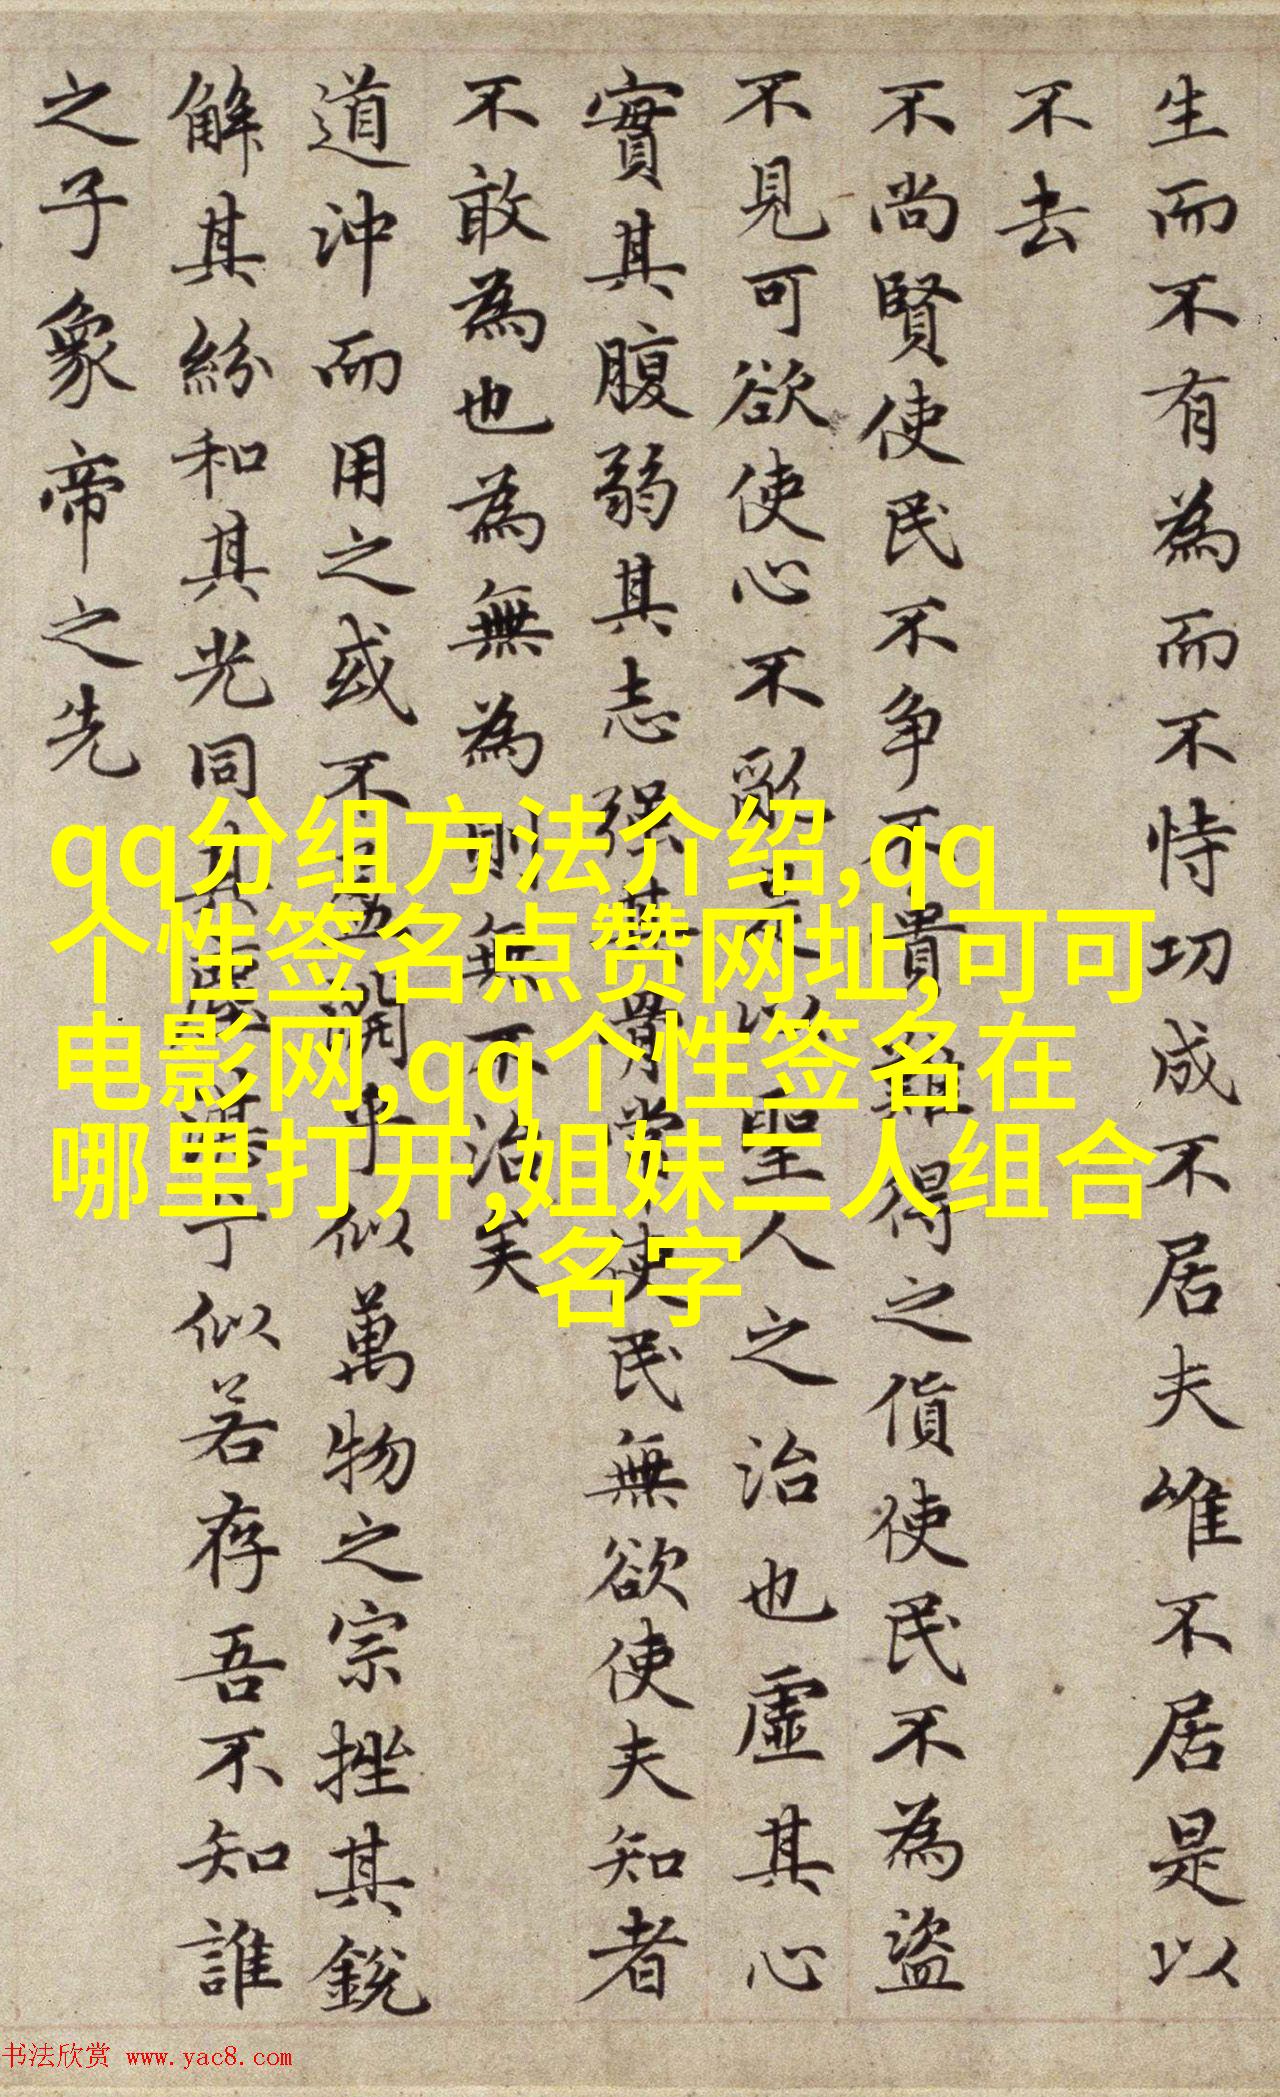 生而不有為而不恃功成不居夫唯不居是以
不去
不尚賢使民不争不貴難得之貨使民不為盜
不見可欲使心不亂是以聖人之治也虛其心
實其腹弱其志强其骨常使民無欲使夫知者
不敢為也為無為則無不治矣
道沖而用之或不盈淵乎似萬物之宗挫其銳
解其紛和其光同其塵湛兮似若存吾不知誰
之子象帝之先
qq分组方法介绍,qq
个性签名点赞网址,可可
电影网,qq个性签名在
哪里打开,姐妹二人组合
名字
书法欣赏 www.yac8.com